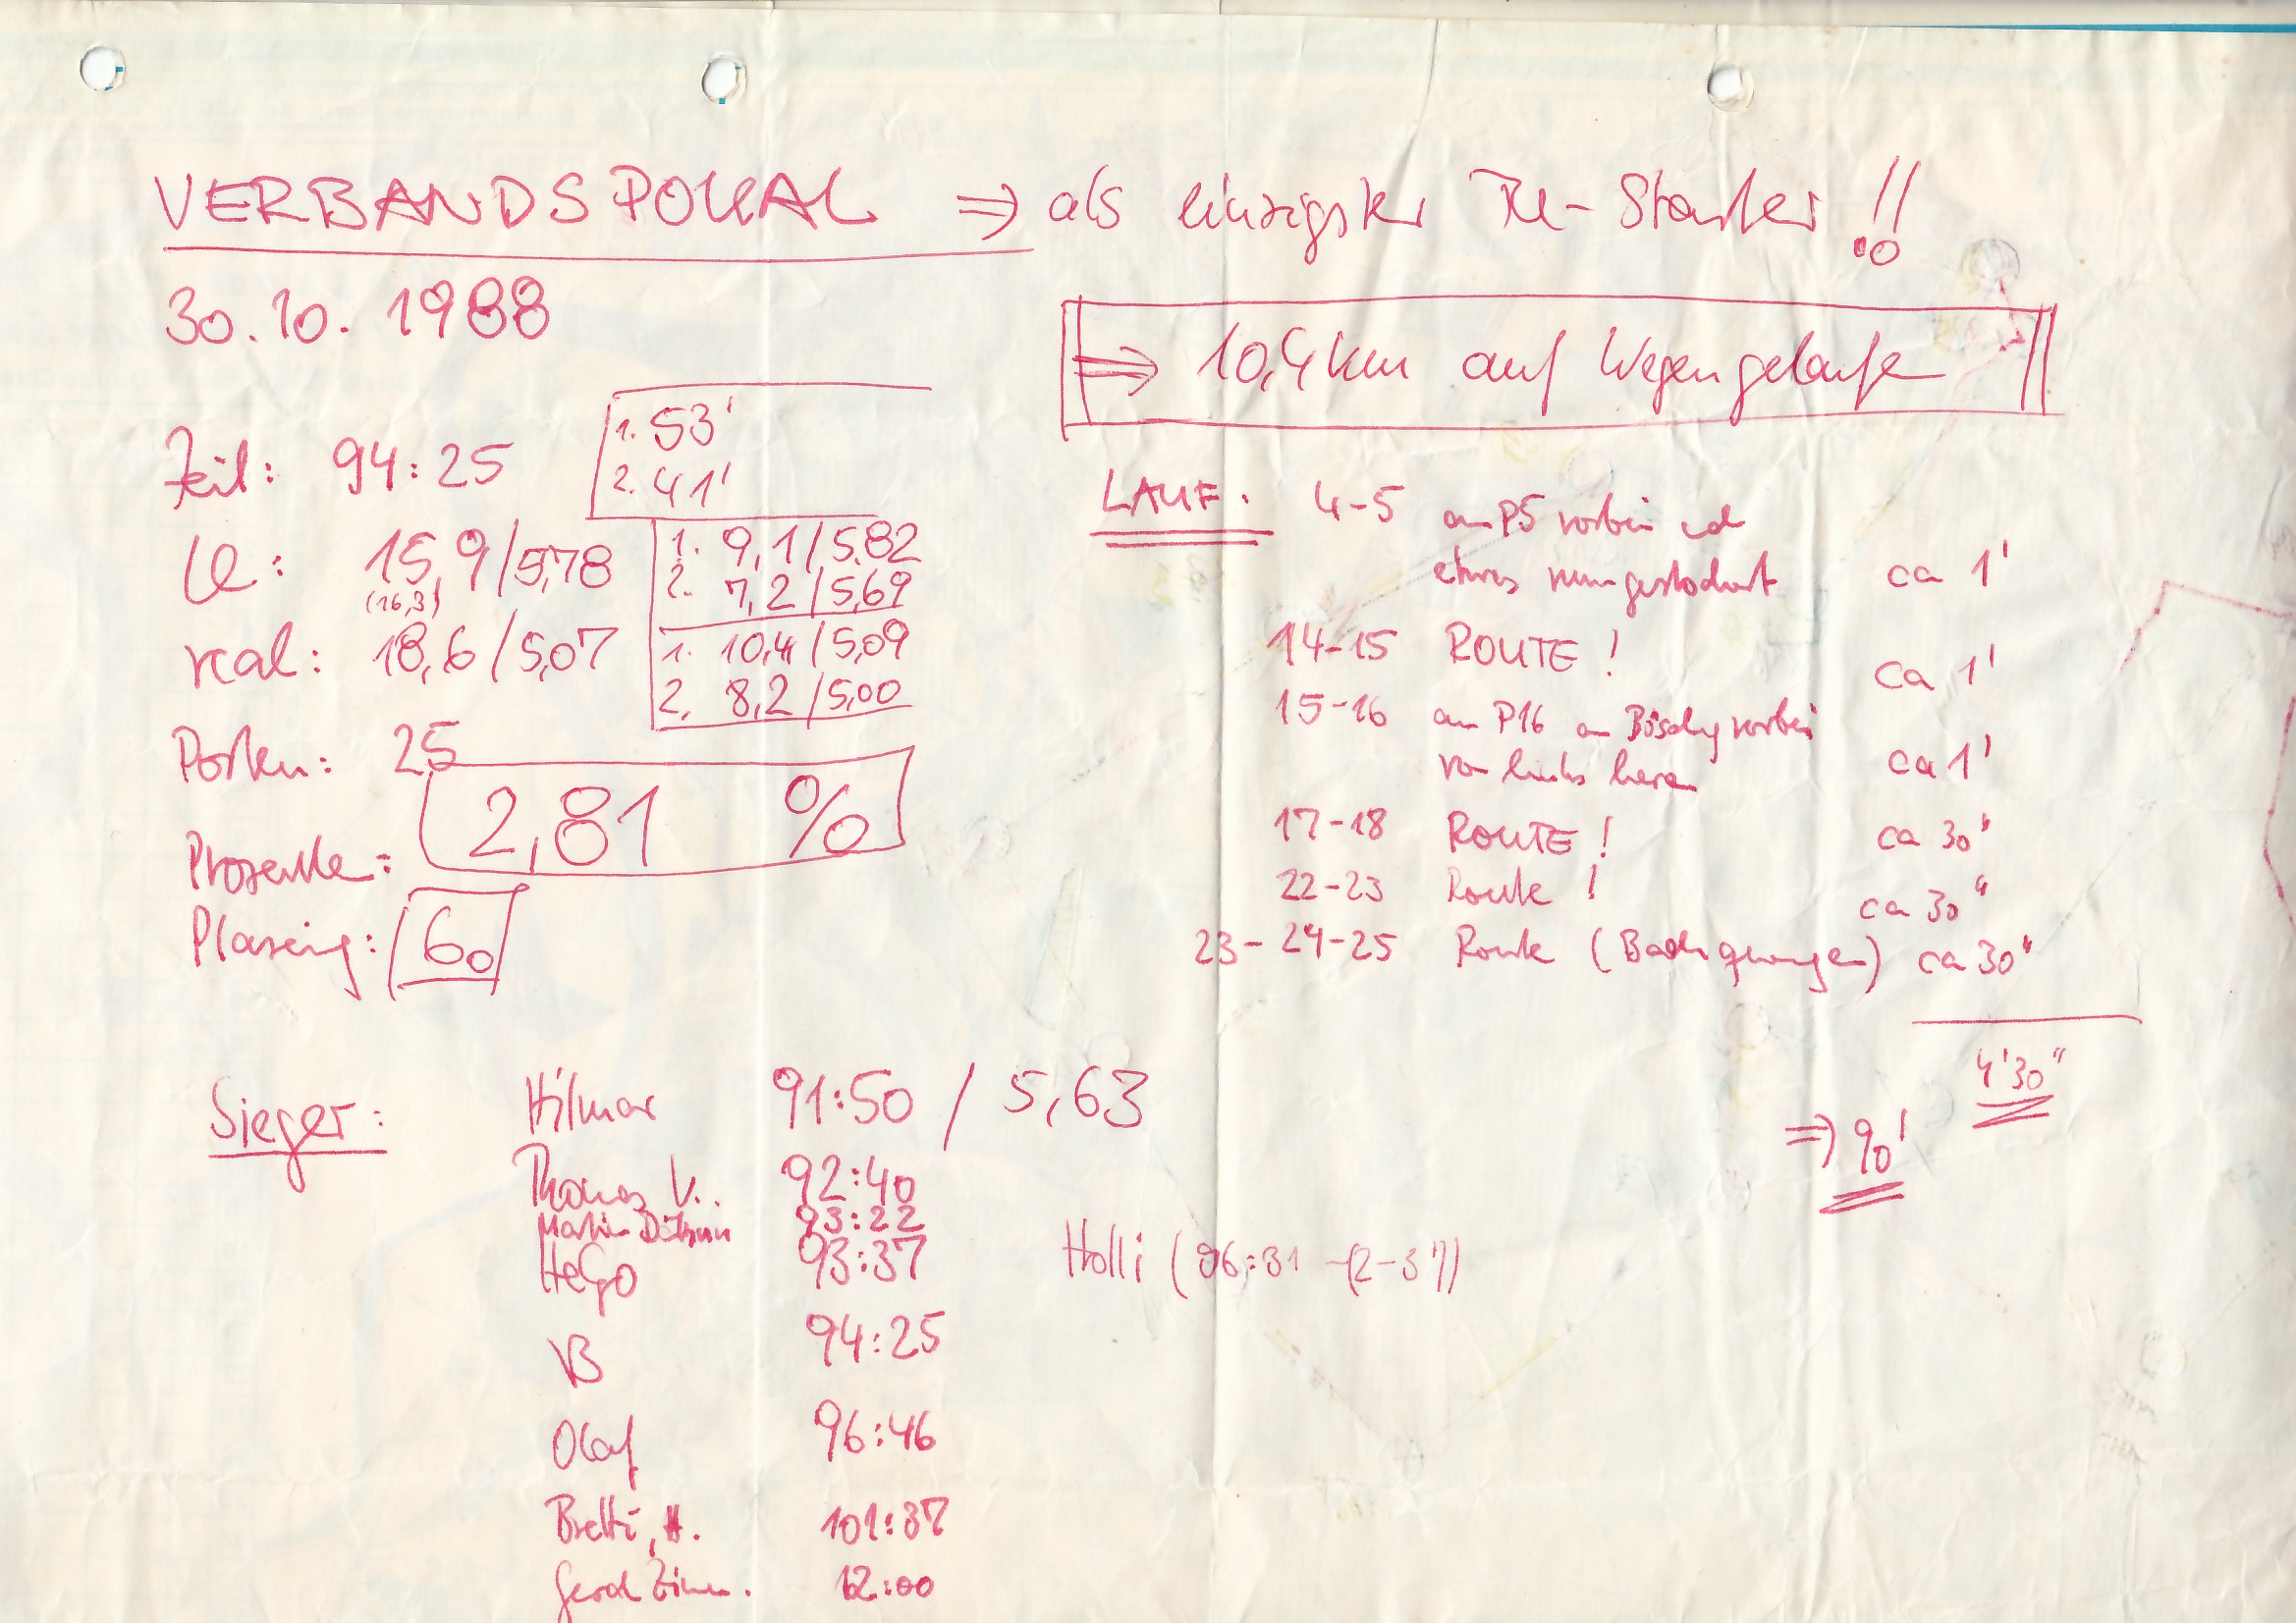 VERBANDSPOKAL ⇒ als einzigster Re-Starter !!
30.10.1988
⇒ 10,4 km auf Wegen gelaufen
Zeit: 94:25
1. 53'
2. 41'
LE: 15,9/5,78
(16,3)
1. 9,1/5,82
2. 7,2/5,69
real: 18,6/5,07
1. 10,4/5,09
2. 8,2/5,00
Posten: 25
Prozente: 2,81 %
Plazierung: 6.
LAUF: 4-5 an P5 vorbei und
etwas rumgestochert ca 1'
14-15 ROUTE! ca 1'
15-16 an P16 an Böschg vorbei
von links heran ca 1'
17-18 ROUTE! ca 30"
22-23 Route! ca 30"
23-24-25 Route ( ) ca 30"
4'30"
⇒ 90'
Sieger: Hilmar 91:50 / 5,63
Thomas V.. 92:40
Martin 93:22
HeGo 93:37
Holli (96:31 -(2-3'))
VB 94:25
Olaf 96:46
Bretti, 101:37
Gerd Zim. 12:00